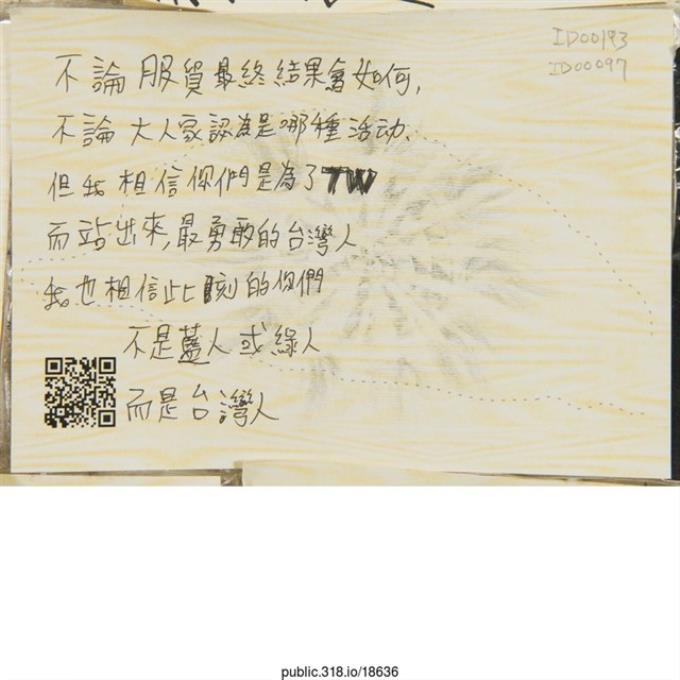 ID00193
ID00097
不論服貿最終結果會如何,
不論大人家認為是哪種活动、
但我相信你們是為了TW
而站出來,最勇敢的台灣人
我也相信此刻的你們
不是藍人或綠人
而是台灣人
public.318.io/18636